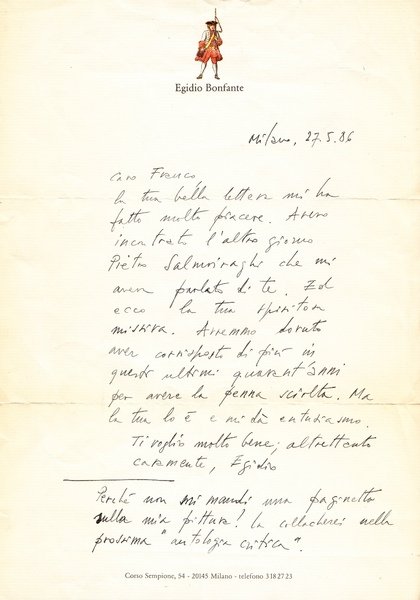 Egidio Bonfante
Milano, 27.5.86
Caro Franco,
la tua bella lettera mi ha
fatto molto piacere. Avevo
incontrato l'altro giorno
Pietro Salmoiraghi che mi
aveva parlato di te. Ed
ecco la tua spiritosa
missiva. Avremmo dovuto
aver corrisposto di più in
questi ultimi quarant'anni
per avere la penna sciolta. Ma
la tua lo è e mi dà entusiasmo.
Ti voglio molto bene; altrettanto
caramente, Egidio
Perché non mi mandi una paginetta
sulla mia pittura! La collocherei nella
prossima "antologia critica".
Corso Sempione, 54 - 20145 Milano - telefono 3182723